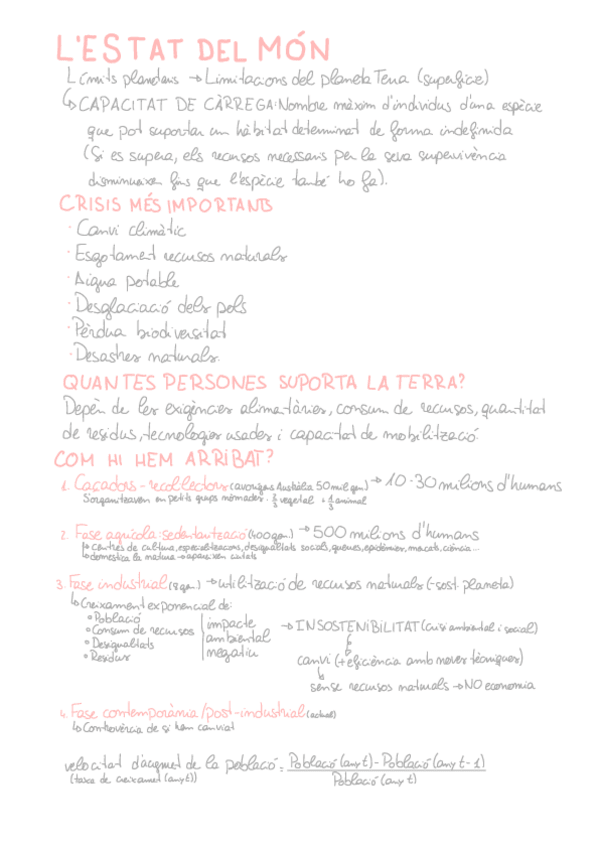 L'ESTAT DEL MÓN
Límits planetaris → Limitacions del planeta Terra (superfície)
↳ CAPACITAT DE CÀRREGA: Nombre màxim d'individus d'una espècie
que pot suportar un hàbitat determinat de forma indefinida
(Si es supera, els recursos necessaris per la seva supervivència
disminueixen fins que l'espècie també ho fa).
CRISIS MÉS IMPORTANTS
· Canvi climàtic
· Esgotament recursos naturals
· Aigua potable
· Desglaciació dels pols
· Pèrdua biodiversitat
· Desastres naturals.
QUANTES PERSONES SUPORTA LA TERRA?
Depèn de les exigències alimentàries, consum de recursos, quantitat
de residus, tecnologies usades i capacitat de mobilització.
COM HI HEM ARRIBAT?
1. Caçadors-recol·lectors (aborígens Austràlia 50 mil gen) → 10-30 milions d'humans
S'organitzaven en petits grups nòmades. 2/3 vegetal + 1/3 animal
2. Fase agrícola: sedentarització (400 gen.) → 500 milions d'humans
↳ centres de cultura, especialitzacions, desigualtats socials, guerres, epidèmies, mercats, ciència...
↳ domestica la natura → apareixen ciutats
3. Fase industrial (8 gen) → utilització de recursos naturals (-sost. planeta)
↳ Creixament exponencial de:
• Població
• Consum de recursos
• Desigualtats
• Residus
impacte
ambiental
negatiu
→ INSOSTENIBILITAT (crisi ambiental i social)
canvi (+ eficiència amb noves tècniques)
↳ sense recursos naturals → NO economia
4. Fase contemporània/post-industrial (actual)
↳ Controvèrcia de si hem canviat
velocitat d'augment de la població = Població (any t) - Població (any t-1)
(taxa de creixament (any t))
Població (any t)